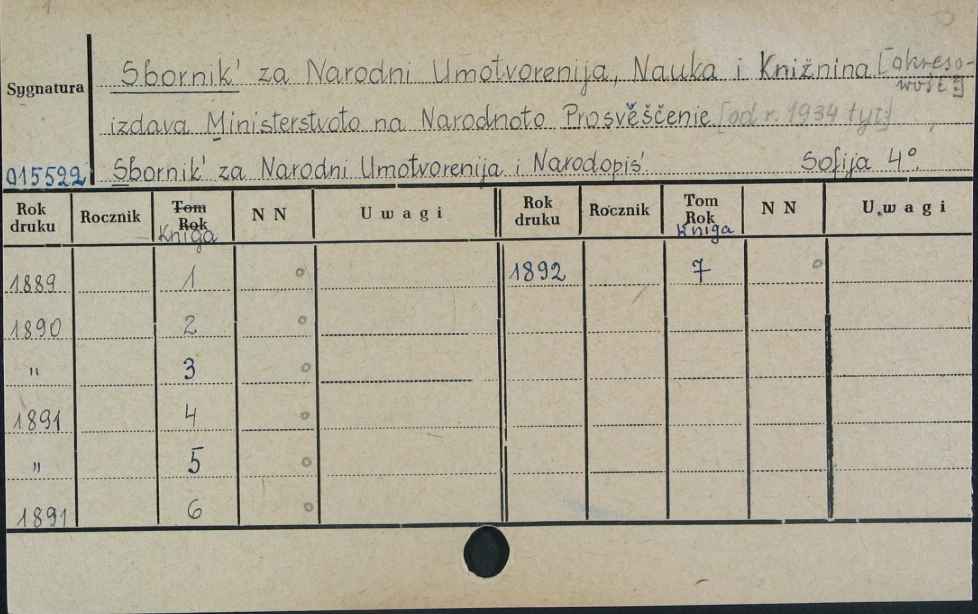 Sbornik' za Narodni Umotvorenija, Nauka i Knižnina [okreso-
wość]
Sygnatura
izdava Ministerstvoto na Narodnoto Prosvěščenie [od r. 1934 tyt]
015522 Sbornik' za Narodni Umotvorenija i Narodopis' Sofija 4°.
Rok druku Rocznik Tom Rok Kniga N N Uwagi Rok druku Rocznik Tom Rok Kniga N N Uwagi
1889 1 1892 7
1890 2
" 3
1891 4
" 5
1891 6